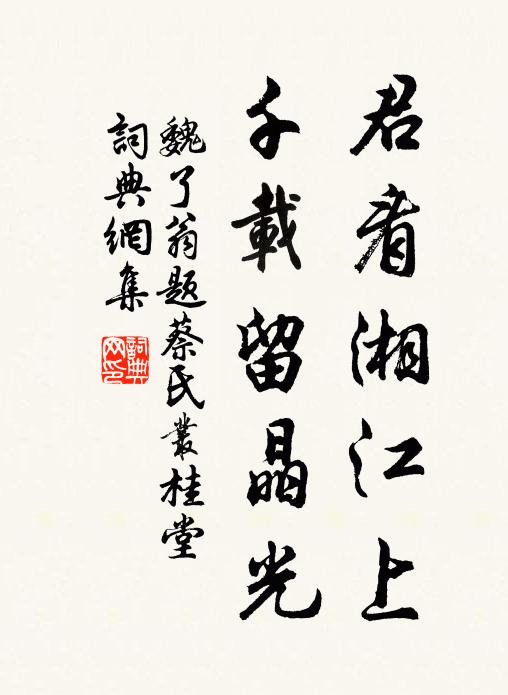 君看湘江上
千載留晶光
魏了翁题蔡氏叢桂堂
詞典網集
詞典网印